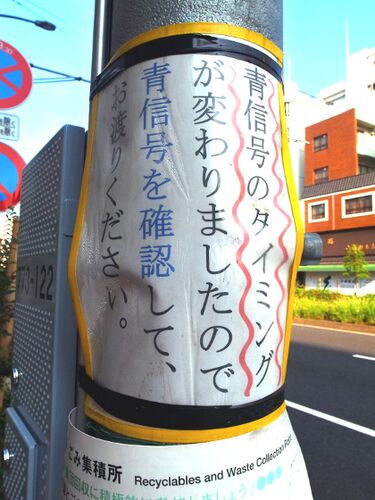 青信号のタイミング
が変わりましたので
青信号を確認して、
お渡りください。
ごみ集積所 Recyclables and Waste Collection Point
773-122